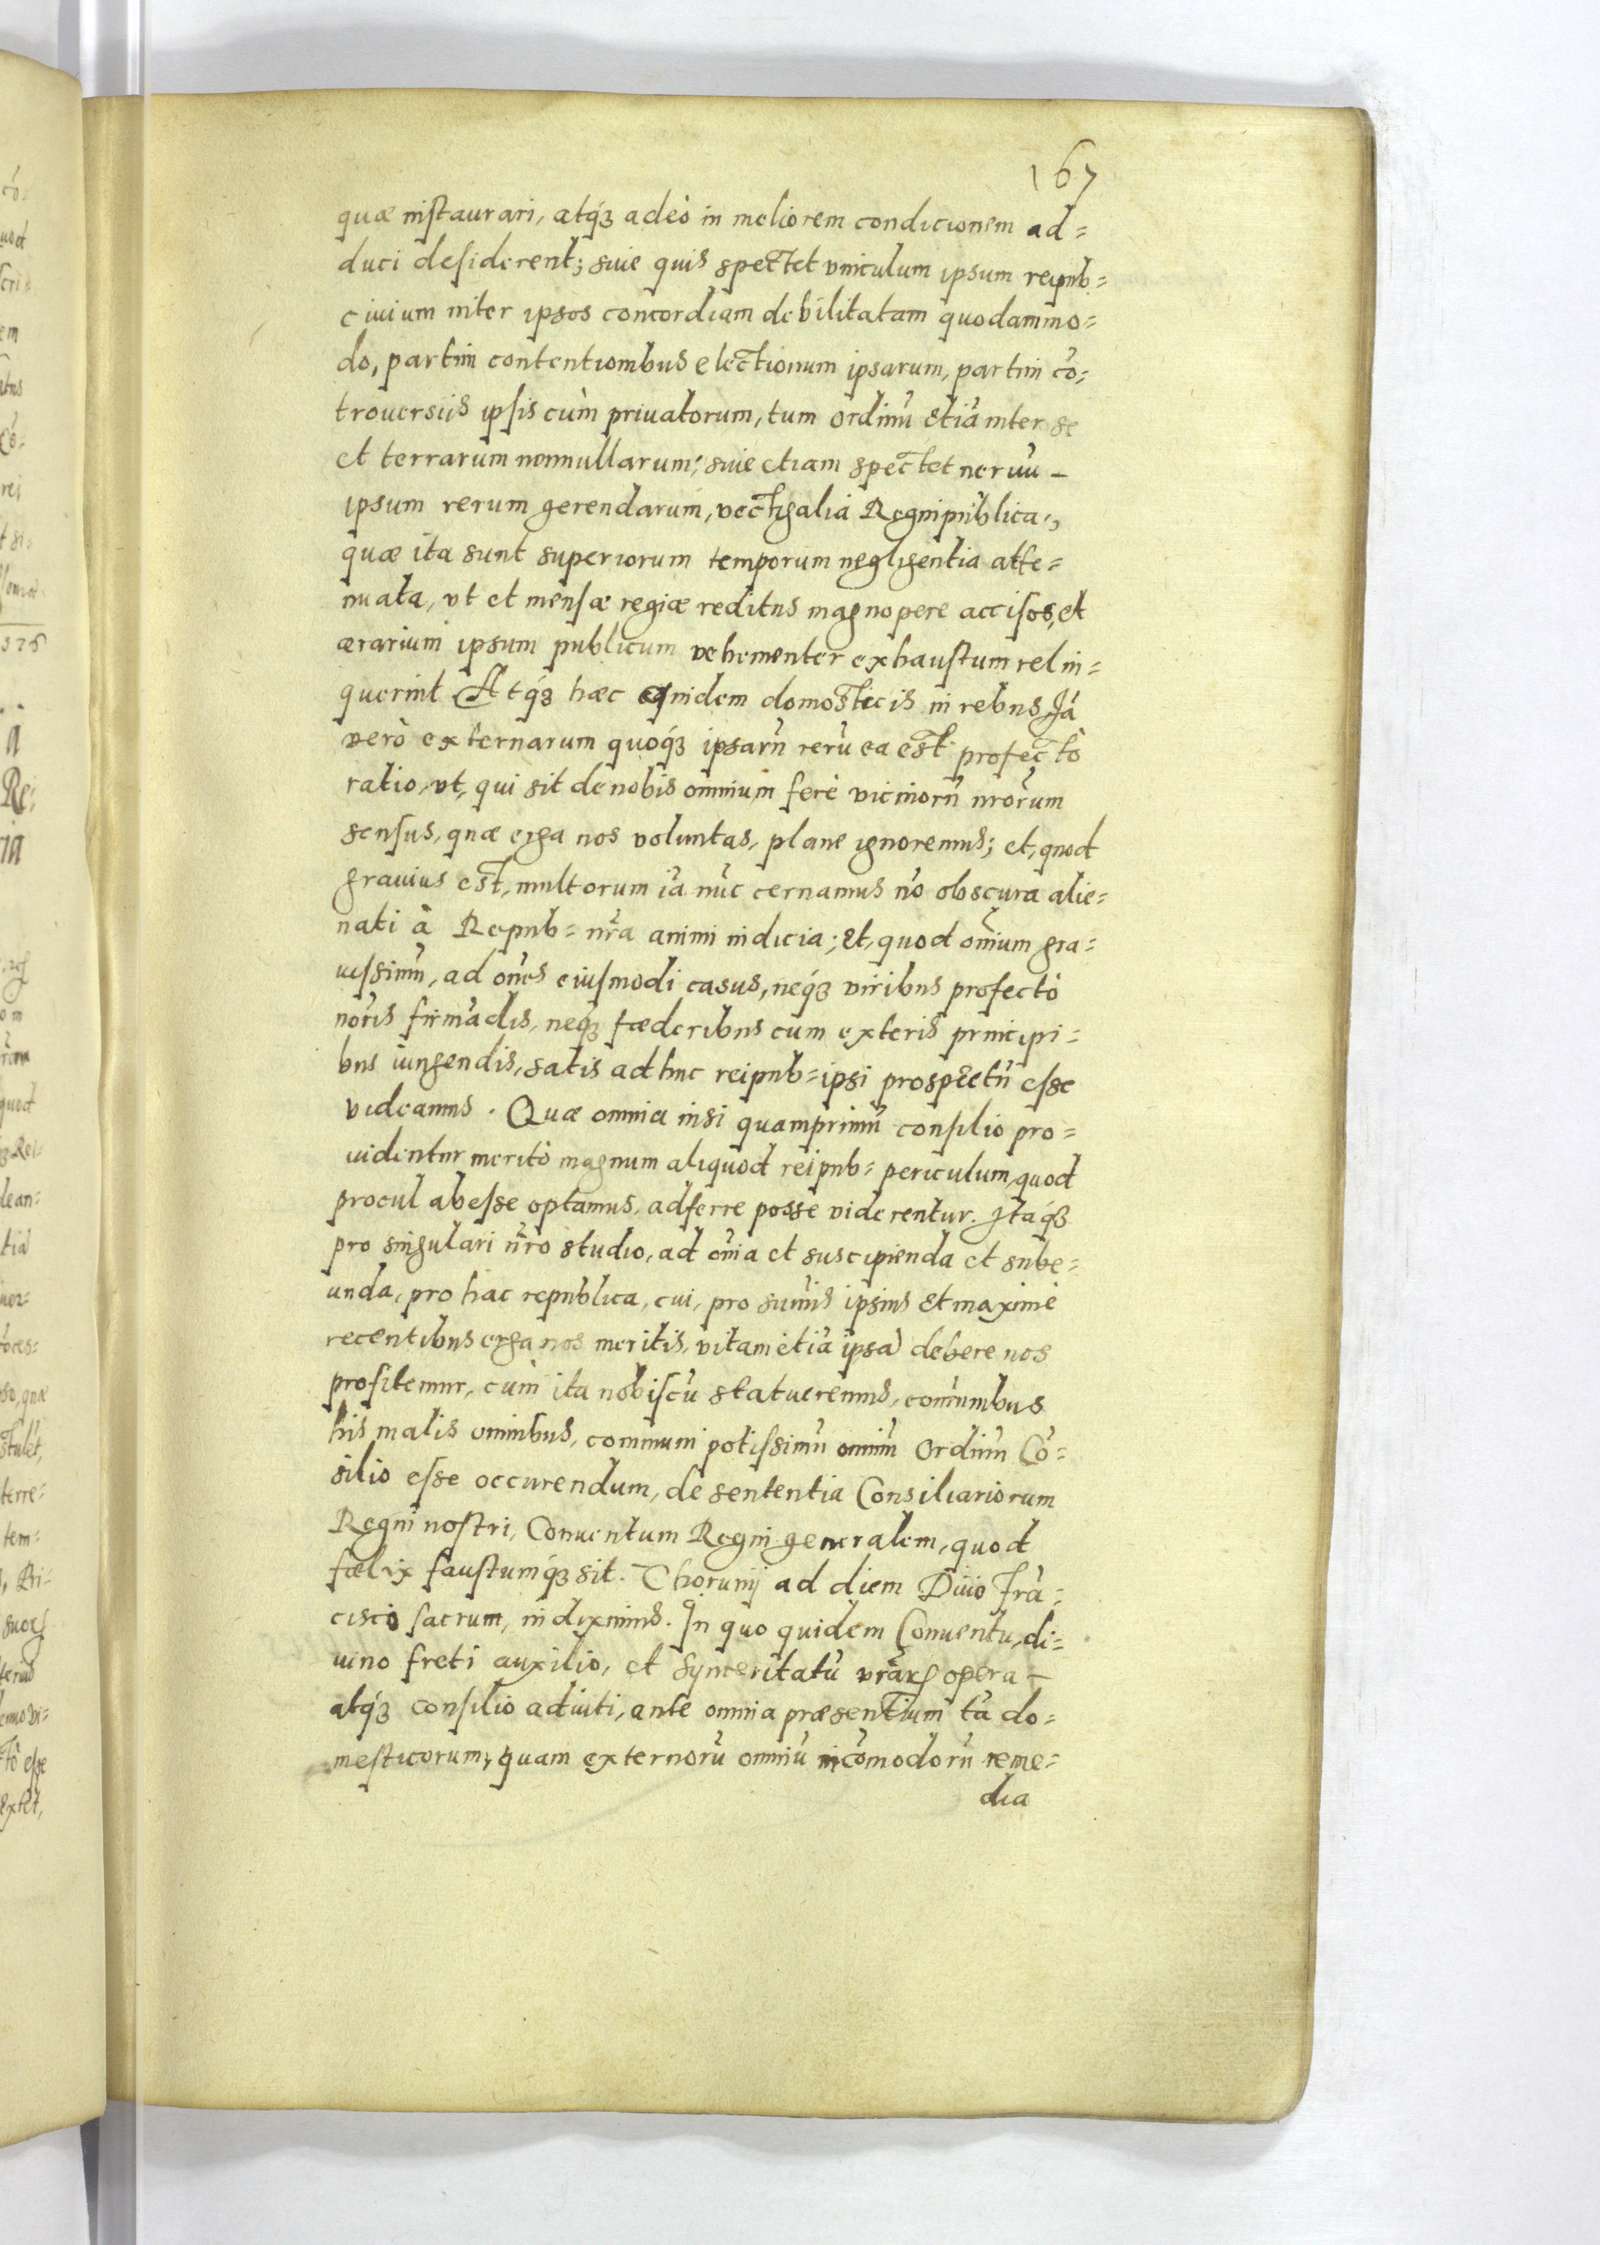 167
quæ instaurari, atq́₃ adeò in meliorem condicionem ad=
duci desiderent; siue quis spectet vinculum ipsum reipub=
ciuium inter ipsos concordiam debilitatam quodammo=
do, partim contentionibus electionum ipsarum, partim cō=
trouersiis ipsis cùm priuatorum, tum ordinū etiā inter se
et terrarum nonnullarum; siue etiam spectet neruū –
ipsum rerum gerendarum, vectigalia Regni publica,
quæ ita sunt superiorum temporum negligentia atte=
nuata, vt et mensæ regiæ reditus magnopere accisos, et
ærarium ipsum publicum vehementer exhaustum relin=
querint Atq́₃ hæc quidem domesticis in rebus Iā
verò externarum quoq́₃ ipsarū rerū ea est profectò
ratio, vt, qui sit de nobis omnium ferè vicinorū nr̃orum
sensus, quæ erga nos voluntas, plane ignoremus; et, quod
grauius est, multorum iā nūc cernamus nō obscura alie=
nati à Repub= nr̃a animi indicia; Et, quod om̃ium gra=
uissimū, ad om̃es eiusmodi casus, neq́₃ viribus profectò
nr̃is firmādis, neq́₃ fœderibus cum exteris principi=
bus iungendis, satis adhuc reipub= ipsi prospectū esse
videamus. Quæ omnia nisi quamprimū consilio pro=
uidentur meritò magnum aliquod reipub= periculum, quod
procul abesse optamus, adferre posse viderentur. Itaq́₃
pro singulari nr̃o studio, ad om̃ia et suscipienda et sube=
unda, pro hac republica, cui, pro sum̃is ipsius et maximè
recentibus erga nos meritis, vitam etiā ipsā debere nos
profitemur, cùm ita nobiscū statueremus, com̃unibus
his malis omnibus, communi potissimū omniū Ordinū Cō=
silio esse occurendum, de sententia Consiliariorum
Regni nostri, Conuentum Regni generalem, quod
fœlix faustumq́₃ sit. Thorunij ad diem Diuo Frā=
cisco sacrum, indiximus. In quo quidem Conuentu, di=
uino freti auxilio, et Synceritatū vr̃arū opera –
atq́₃ consilio adiuti, ante omnia præsentium tā do=
mesticorum, quam externorū omniū incōmodorū reme=
dia